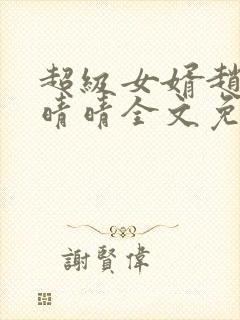 超級女婿趙
晴晴全文免
謝賢偉